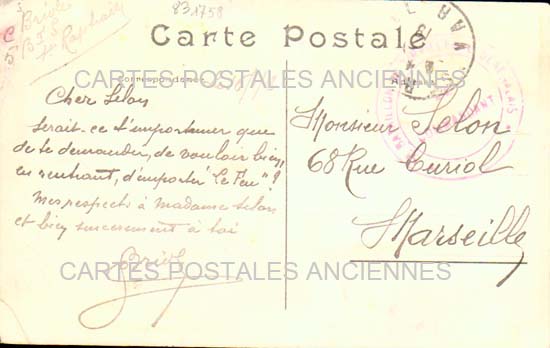 831758
Carte Postale
Correspondance
CARTES POSTALES ANCIENNES
Cher Selon
serait-ce t'importuner que
de te demander, de vouloir bien,
en rentrant, d'emporter "Le Feu"?
Mes respects à madame Selon
et bien sincerement à toi
Briol
Monsieur Selon
68 Rue Curiol
Marseille
CARTES POSTALES ANCIENNES